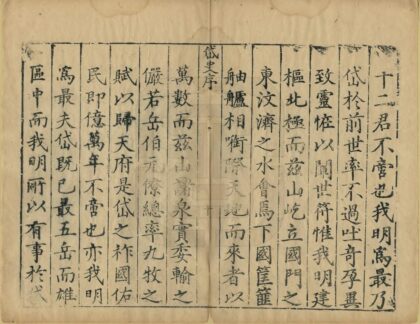 十二君不啻也我明為最乃
岱於前世率不過吐奇孕異
致靈恠以闡世符惟我明建
樞北極而茲山屹立國門之
東汶濟之水會焉下國筐篚
舳艫相銜際天地而來者以
岱史序
萬數而茲山靈泉實委輸之
儼若岳伯元僚總率九牧之
賦以歸天府是岱之祚國佑
民即億萬年不啻也亦我明
為最夫岱既已最五岳而雄
區中而我明所以有事於岱